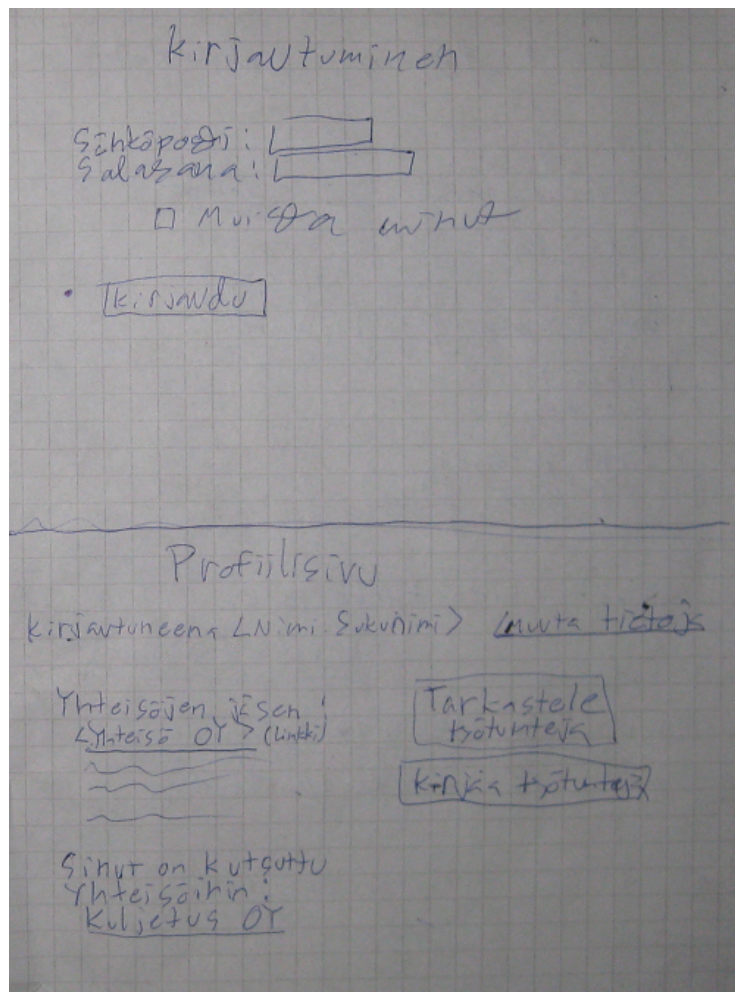 Kirjautuminen
Sähköposti:
Salasana:
Muista minut
Kirjaudu
Profiilisivu
Kirjautuneena <Nimi Sukunimi> Muuta tietoja
Yhteisöjen jäsen:
<Yhteisö OY> (Linkki)
Tarkastele
työtunteja
Kirjaa työtunteja
Sinut on kutsuttu
Yhteisöihin:
Kuljetus OY